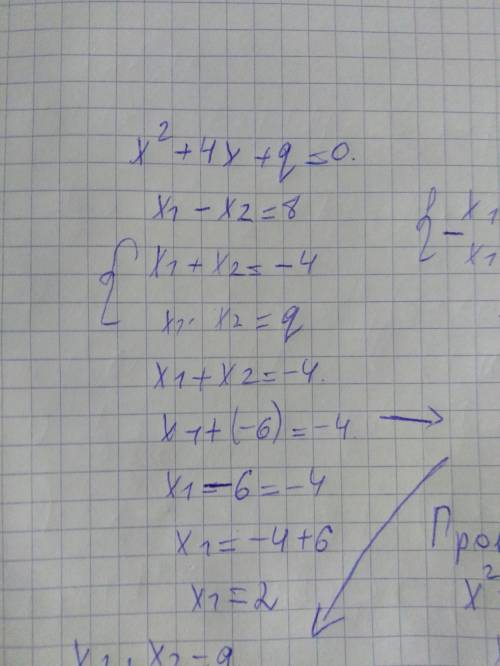 x² + 4x + q = 0.
x₁ − x₂ = 8
{ x₁ + x₂ = −4
x₁ · x₂ = q
x₁ + x₂ = −4.
x₁ + (−6) = −4 →
x₁ − 6 = −4
x₁ = −4 + 6
x₁ = 2
{ − x₁
x₁
x²